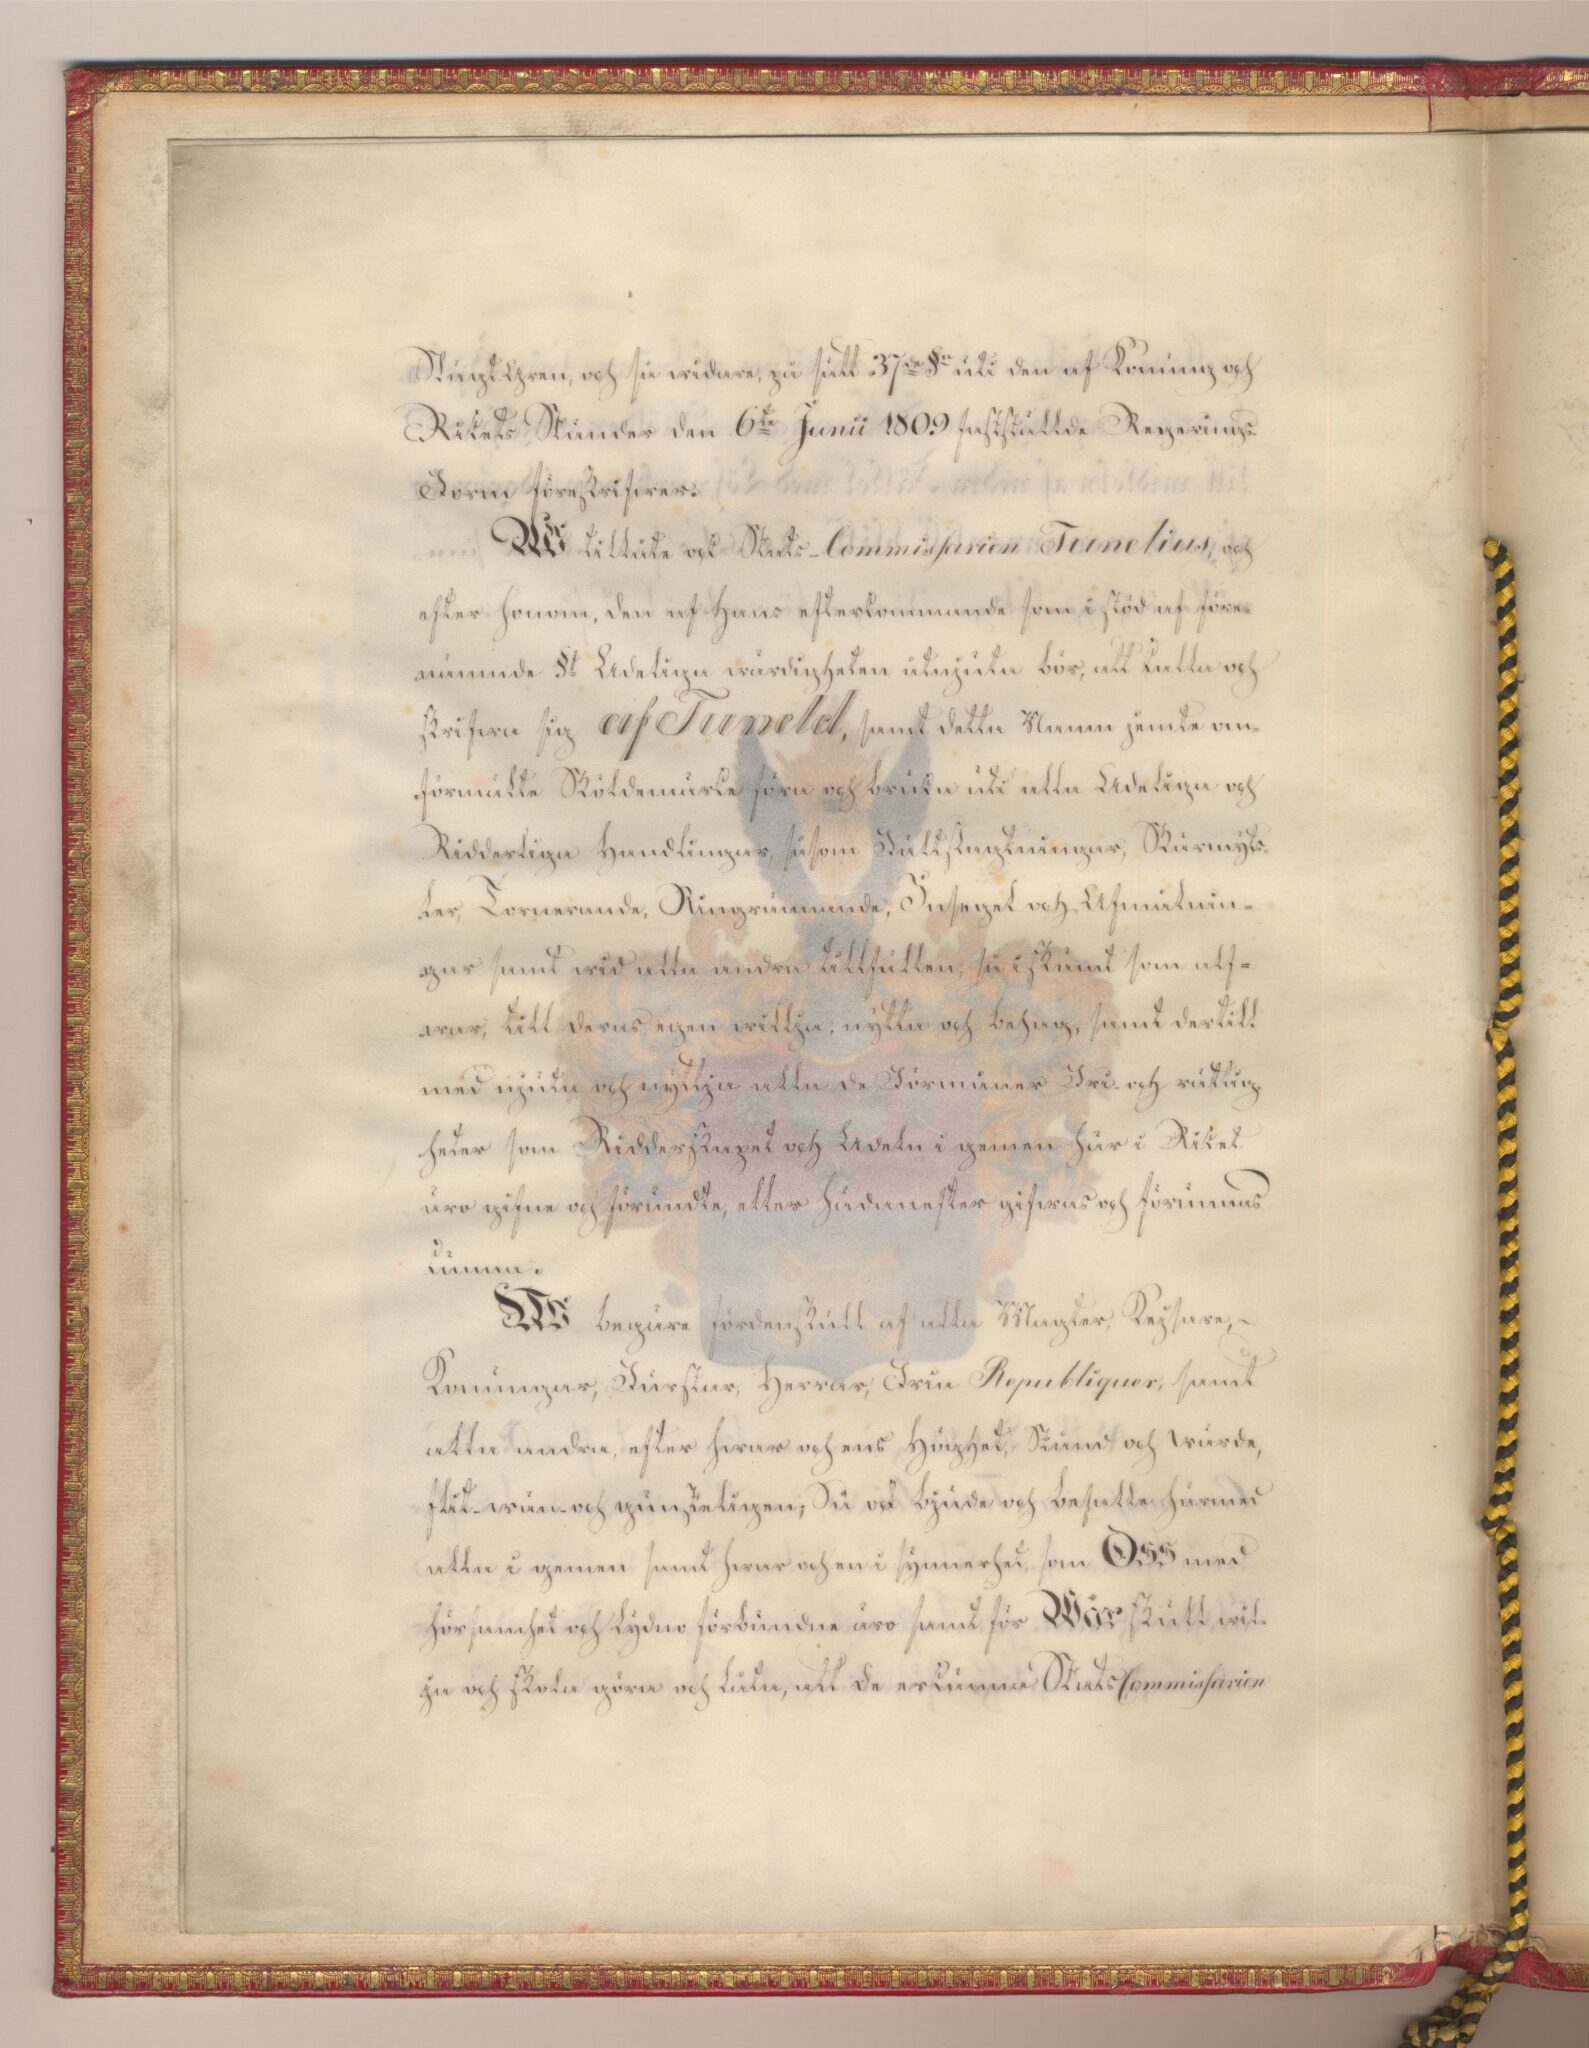 Slägt Hren, och så widare, på sätt 37de §n uti den af Konung och
Rikets Ständer den 6te Junii 1809 fastställde Regerings-
Form föreskrifwer.
Wi tillåte ock Stats-Commissarien Tunelius, och
efter honom, den af Hans efterkommande som i stöd af före-
nämnde §t Adeliga wärdigheten åtnjuta bör, att kalla och
skrifwa sig af Tuneld, samt detta Namn jemte om-
förmälte Sköldemärke föra och bruka uti alla Adeliga och
Ridderliga Handlingar, såsom Fältslagtningar, Skärmyts-
ler, Tornerande, Ringrännande, Insegel och Afmålnin-
gar samt wid alla andra tillfällen, så i skämt som alf-
war, till deras egen willja, nytta och behag, samt dertill
med njuta och nyttja alla de Förmåner Fri- och rättig
heter som Ridderskapet och Adeln i gemen här i Riket
äro gifne och förundte, eller hädanefter gifwas och förunnas
kunna.
Wi begäre fördenskull af alla Magter, Kejsare,
Konungar, Furstar, Herrar, Fria Republiquer, samt
alla andra, efter hwar och ens Höghet, Stånd och wärde,
flit- wän- och gunsteligen; Så ock bjude och befalle härmed
alla i gemen samt hwar och en i synnerhet, som Oss med
hörsamhet och lydno förbundne äro samt för Wår skull wil-
ja och skola göra och låta, att de erkänna Stats Commissarien